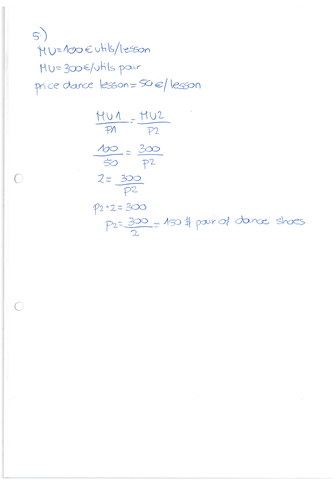 5)
MU=100€ utils/lesson
MU=300€/utils pair
price dance lesson=50€/lesson
MU1/P1 = MU2/P2
100/50 = 300/P2
2=300/P2
P2·2=300
P2=300/2=150$ pair of dance shoes